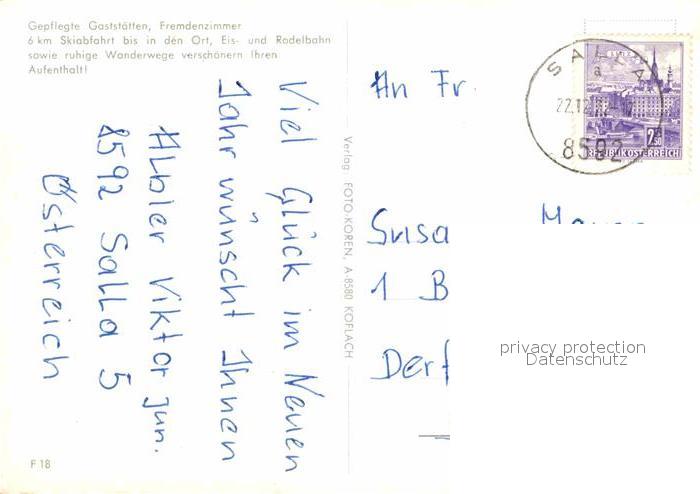 Gepflegte Gaststätten, Fremdenzimmer
6 km Skiabfahrt bis in den Ort, Eis- und Rodelbahn
sowie ruhige Wanderwege verschönern Ihren
Aufenthalt!
Viel Glück im Neuen
Jahr wünscht Ihnen
Albler Viktor jun.
8592 Salla 5
Österreich
F 18
Verlag FOTO-KOREN, A-8580 KÖFLACH
An Fr
Susa
1 B
Derf
SALLA
22.12.
8592
2.50
REPUBLIK ÖSTERREICH
privacy protection
Datenschutz